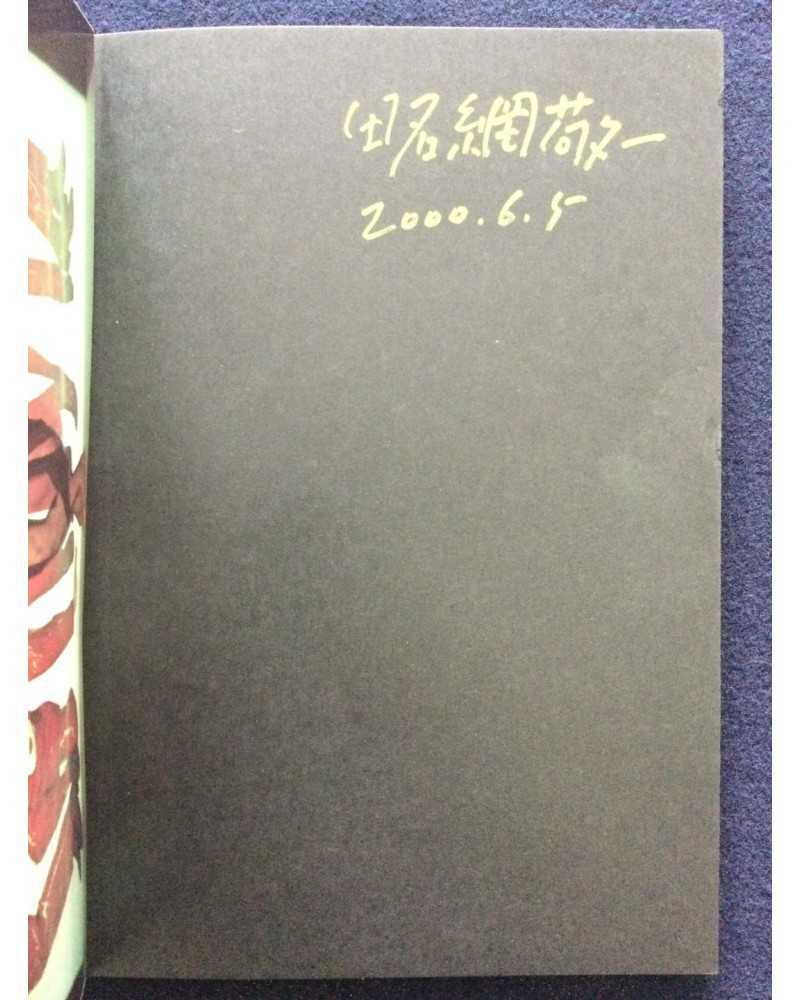 田名網敬一
2000.6.5